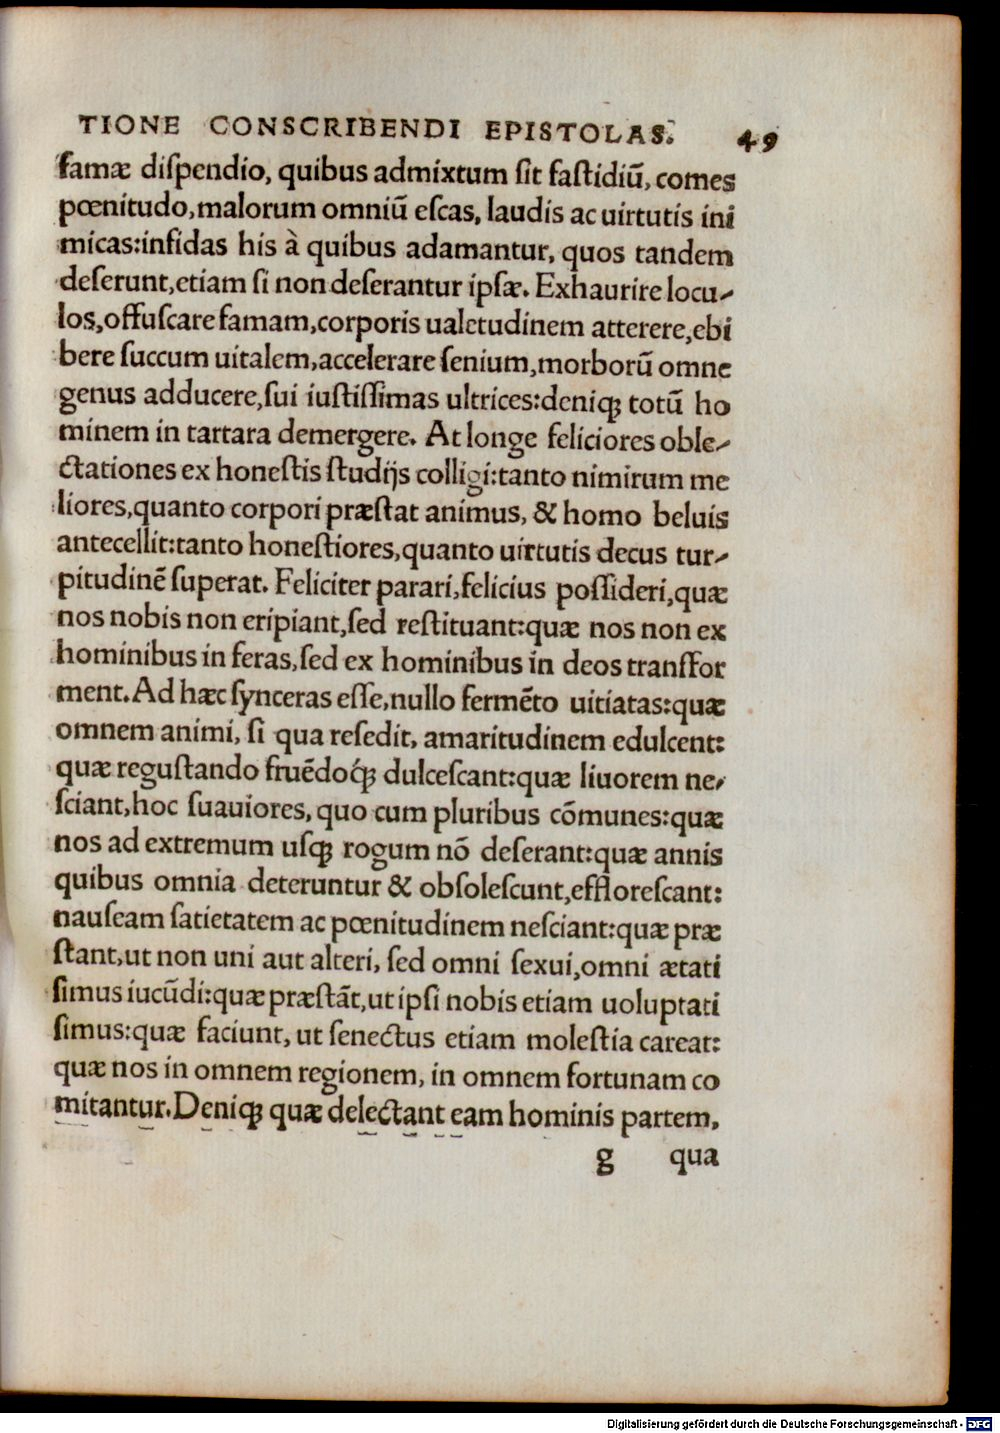 TIONE CONSCRIBENDI EPISTOLAS. 49
famæ diſpendio, quibus admixtum ſit faſtidiũ, comes
pœnitudo, malorum omniũ eſcas, laudis ac uirtutis ini
micas: infidas his à quibus adamantur, quos tandem
deſerunt, etiam ſi non deſerantur ipſæ. Exhaurire locu-
los, offuſcare famam, corporis ualetudinem atterere, ebi
bere ſuccum uitalem, accelerare ſenium, morborũ omne
genus adducere, ſui iuſtiſſimas ultrices: deniqꝫ totũ ho
minem in tartara demergere. At longe feliciores oble-
ctationes ex honeſtis ſtudijs colligi: tanto nimirum me
liores, quanto corpori præſtat animus, & homo beluis
antecellit: tanto honeſtiores, quanto uirtutis decus tur-
pitudinẽ ſuperat. Feliciter parari, felicius poſſideri, quæ
nos nobis non eripiant, ſed reſtituant: quæ nos non ex
hominibus in feras, ſed ex hominibus in deos transfor
ment. Ad hæc ſynceras eſſe, nullo fermẽto uitiatas: quæ
omnem animi, ſi qua reſedit, amaritudinem edulcent:
quæ reguſtando fruẽdoq́ꝫ dulceſcant: quæ liuorem ne-
ſciant, hoc ſuauiores, quo cum pluribus cõmunes: quæ
nos ad extremum uſqꝫ rogum nõ deſerant: quæ annis
quibus omnia deteruntur & obſoleſcunt, effloreſcant:
nauſeam ſatietatem ac pœnitudinem neſciant: quæ præ
ſtant, ut non uni aut alteri, ſed omni ſexui, omni ætati
ſimus iucũdi: quæ præſtãt, ut ipſi nobis etiam uoluptati
ſimus: quæ faciunt, ut ſenectus etiam moleſtia careat:
quæ nos in omnem regionem, in omnem fortunam co
mitantur. Deniqꝫ quæ delectant eam hominis partem,
g qua
Digitalisierung gefördert durch die Deutsche Forschungsgemeinschaft - DFG